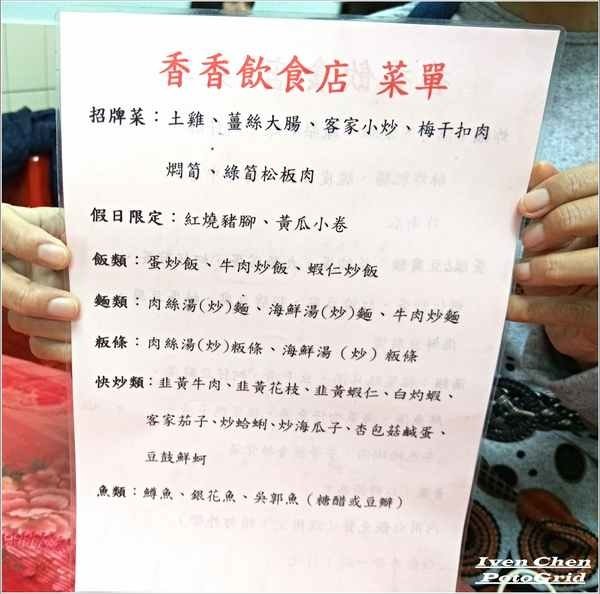 香香飲食店 菜單
招牌菜：土雞、薑絲大腸、客家小炒、梅干扣肉
燜筍、綠筍松板肉
假日限定：紅燒豬腳、黃瓜小卷
飯類：蛋炒飯、牛肉炒飯、蝦仁炒飯
麵類：肉絲湯(炒)麵、海鮮湯(炒)麵、牛肉炒麵
粄條：肉絲湯(炒)粄條、海鮮湯（炒）粄條
快炒類：韭黃牛肉、韭黃花枝、韭黃蝦仁、白灼蝦、
客家茄子、炒蛤蜊、炒海瓜子、杏包菇鹹蛋、
豆鼓鮮蚵
魚類：鱒魚、銀花魚、吳郭魚（糖醋或豆瓣）
Iven Chen
PotoGrid